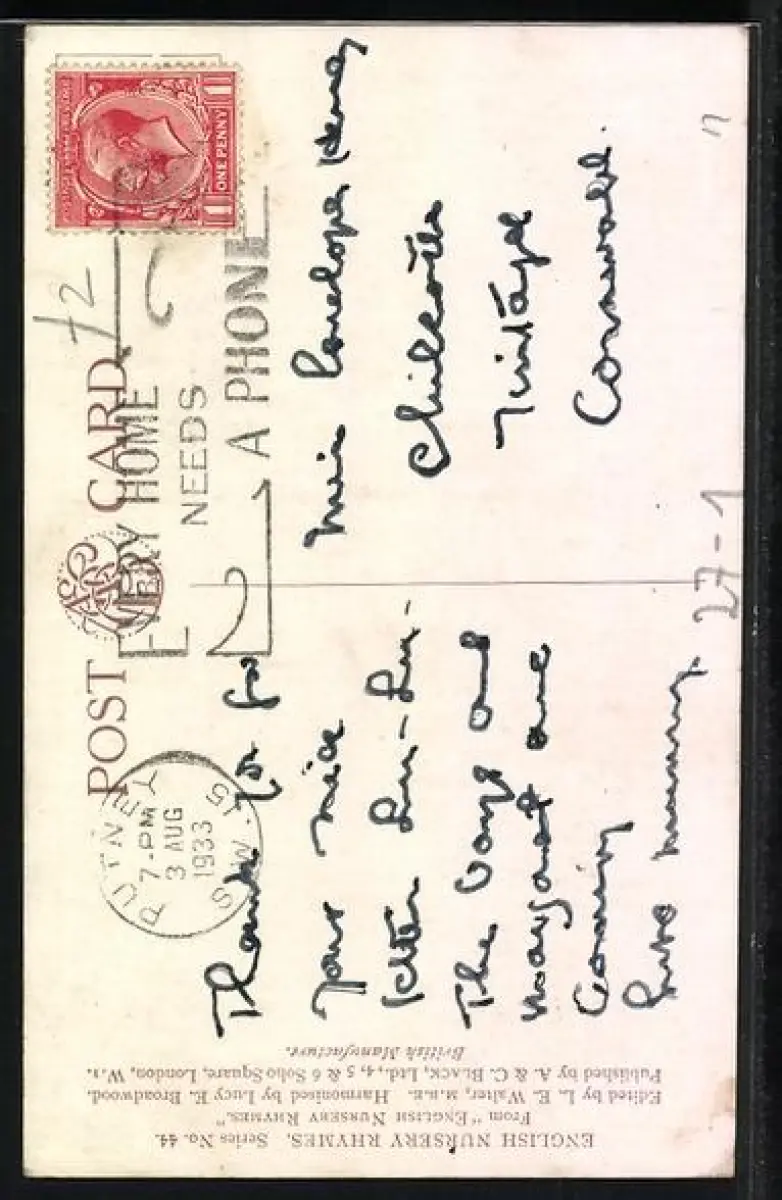 ENGLISH NURSERY RHYMES. Series No. 44.
From "ENGLISH NURSERY RHYMES."
Edited by L. E. Walter, M.B.E. Harmonised by Lucy E. Broadwood.
Published by A. & C. BLACK, Ltd., 4, 5 & 6 Soho Square, London, W.1.
British Manufacture.
POST CARD
PUTNEY
7-PM
3 AUG
1933
S.W.15
EVERY HOME
NEEDS
A PHONE
ONE PENNY
Thank you for
your nice
letter
The Boys and
Margaret are
Coming
Miss Penelope
Tintagel
Cornwall.
27-1